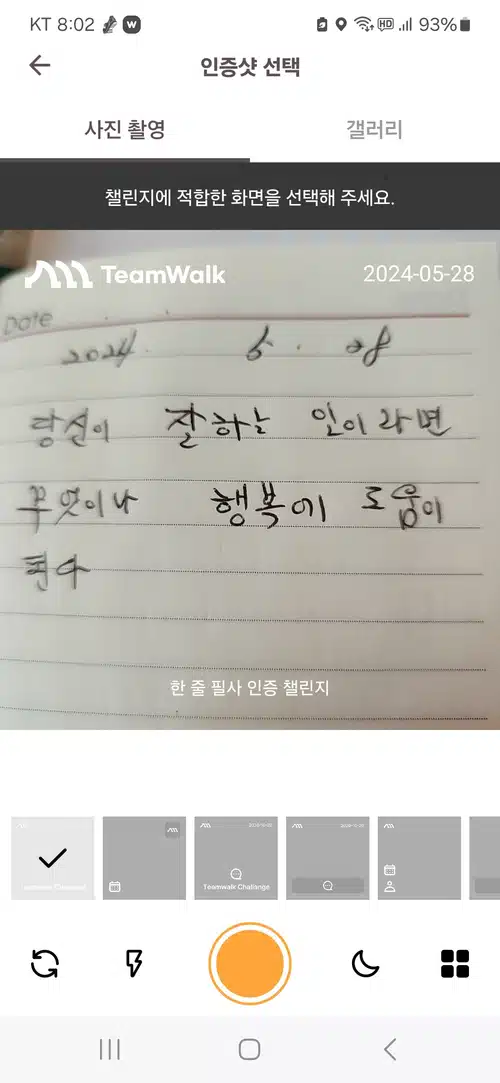 KT 8:02 W HD 93%
인증샷 선택
사진 촬영 갤러리
챌린지에 적합한 화면을 선택해 주세요.
TeamWalk 2024-05-28
Date
2024. 5. 28
당신이 잘하는 인이라면
무엇이나 행복에 도움이
된다
한 줄 필사 인증 챌린지
Teamwalk Challenge